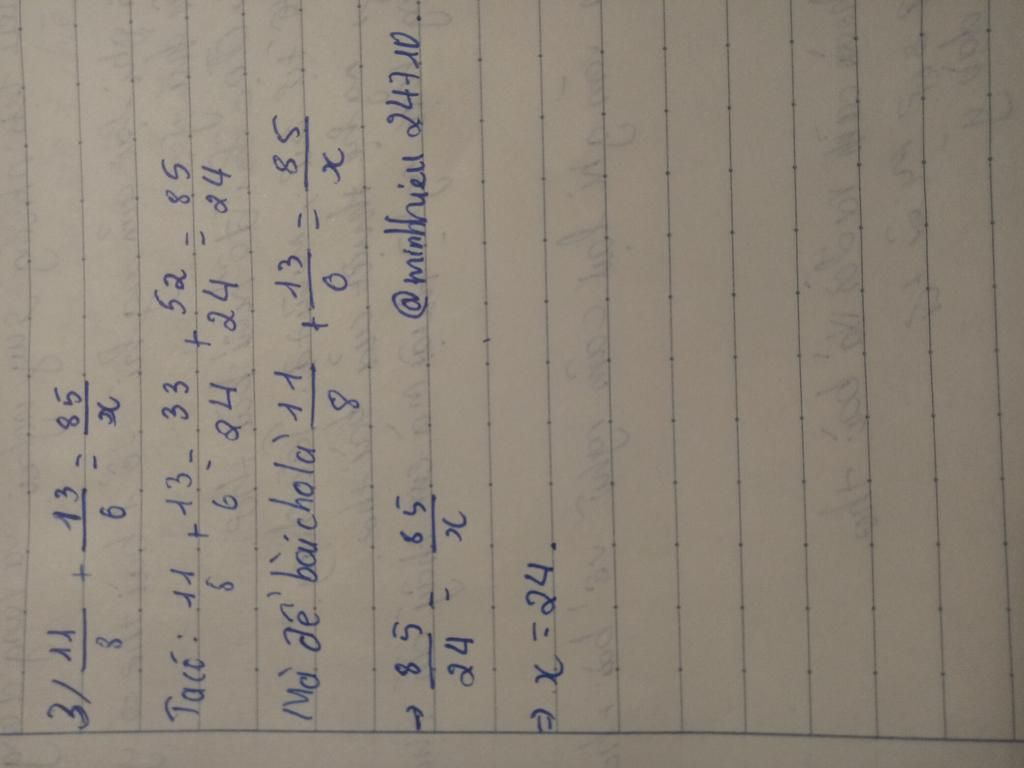 3/ 11/8 + 13/6 = 85/x
Ta có: 11/8 + 13/6 = 33/24 + 52/24 = 85/24
Mà đề bài cho là 11/8 + 13/6 = 85/x
→ 85/24 = 85/x @minhhieu24710.
⇒ x = 24.